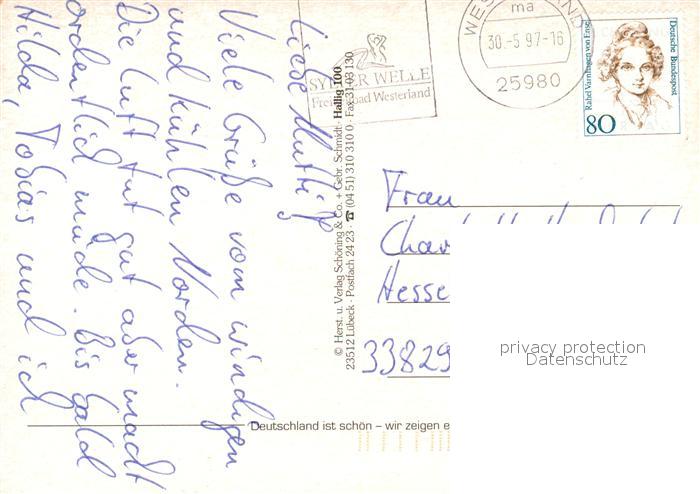 Liebe Mutti,
Viele Grüße vom windigen
und kühlen Norden.
Die Luft tut gut aber macht
ordentlich müde. Bis bald
Hilda, Tobias und ich
© Herst. u. Verlag Schöning & Co. + Gebr. Schmidt · Hallig 100
23512 Lübeck · Postfach 24 23 · ☎ (04 51) 310 310 0 · Fax 31 03 130
SYLTER WELLE
Freizeitbad Westerland
ma
30.-5.97-16
25980
Rahel Varnhagen von Ense
Deutsche Bundespost
80
Frau
Char
Hesse
33829
privacy protection
Datenschutz
Deutschland ist schön – wir zeigen e